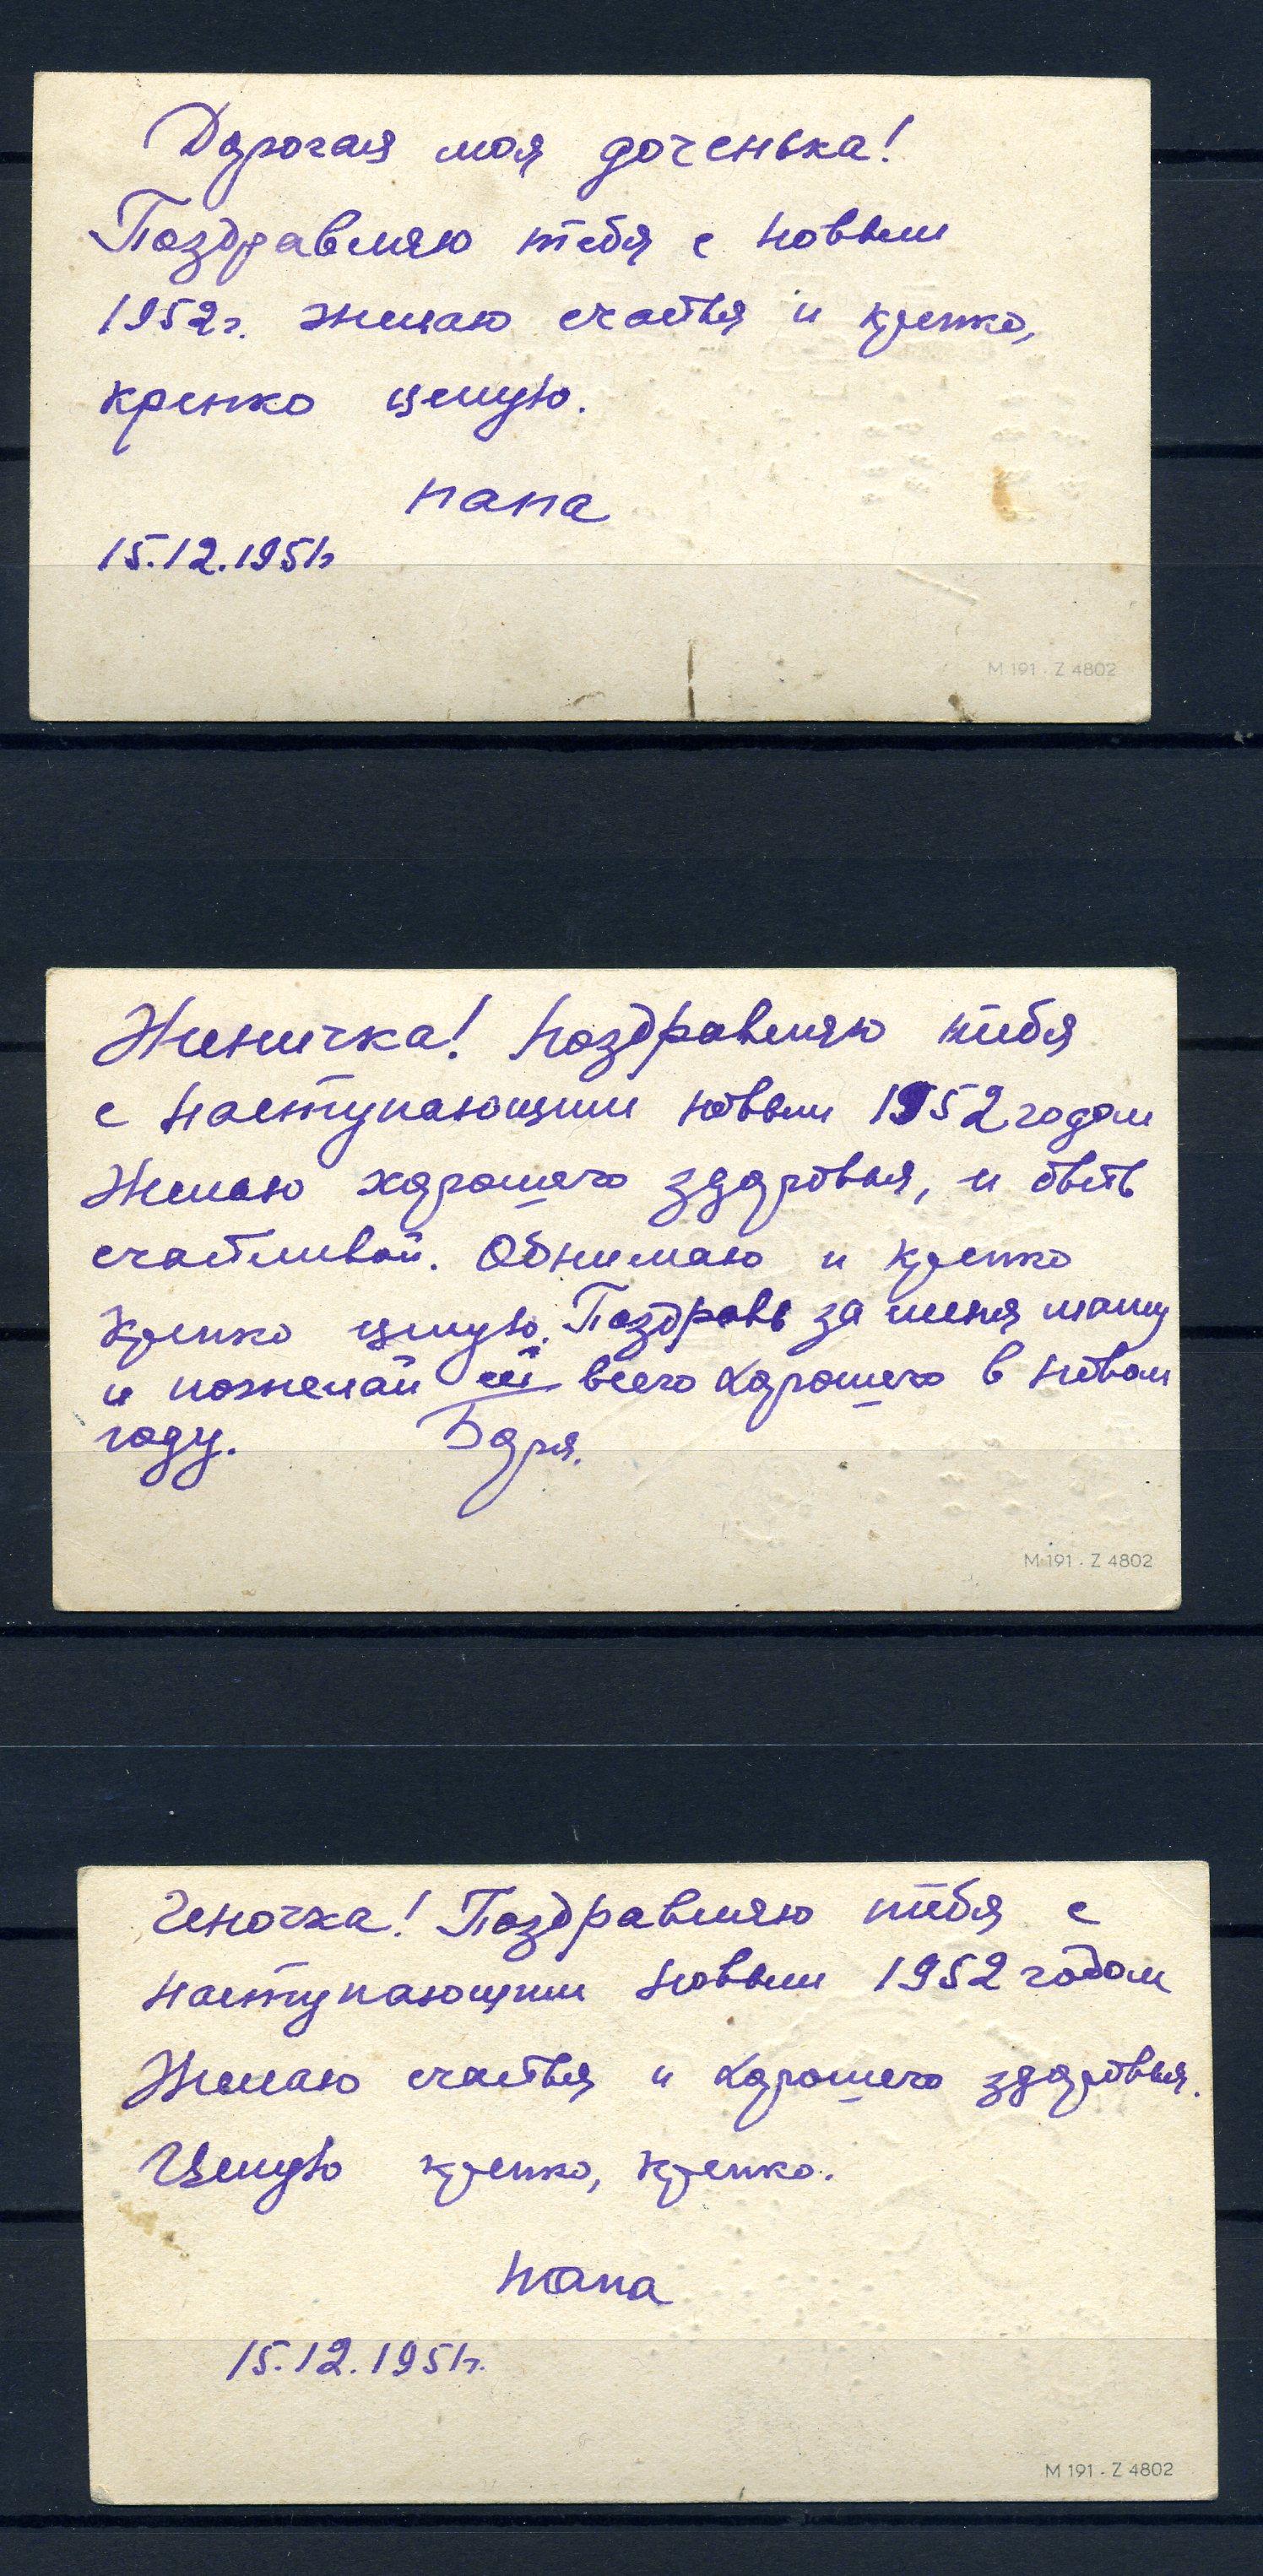 Дорогая моя доченька!
Поздравляю тебя с новым
1952г. желаю счастья и крепко,
крепко целую.
папа
15.12.1951г
M 191 . Z 4802
Женичка! Поздравляю тебя
с наступающим новым 1952 годом
Желаю хорошего здоровья, и быть
счастливой. Обнимаю и крепко
крепко целую. Поздравь за меня маму
и пожелай ей всего хорошего в новом
году. Боря.
M 191 . Z 4802
Геночка! Поздравляю тебя с
наступающим новым 1952 годом
Желаю счастья и хорошего здоровья.
Целую крепко, крепко.
папа
15.12.1951г.
M 191 . Z 4802